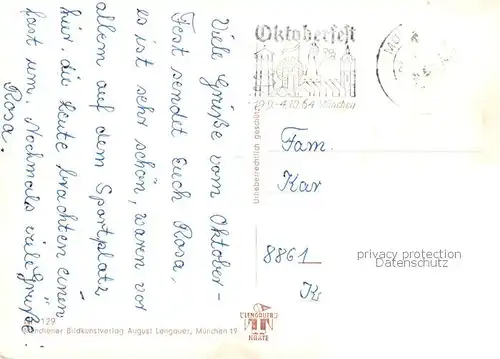 Viele Grüße vom Oktober-
Fest sendet Euch Rosa,
es ist sehr schön, waren vor
allem auf dem Sportplatz
hier. die Leute brachten einen
fast um. Nochmals viele Grüße.
Rosa.
Oktoberfest
19.9.-4.10.64 München
Urheberrechtlich geschützt
Fam.
Kar
8861
Kr
privacy protection
Datenschutz
129
Münchener Bildkunstverlag August Lengauer, München 19
LENGAUER
KARTE